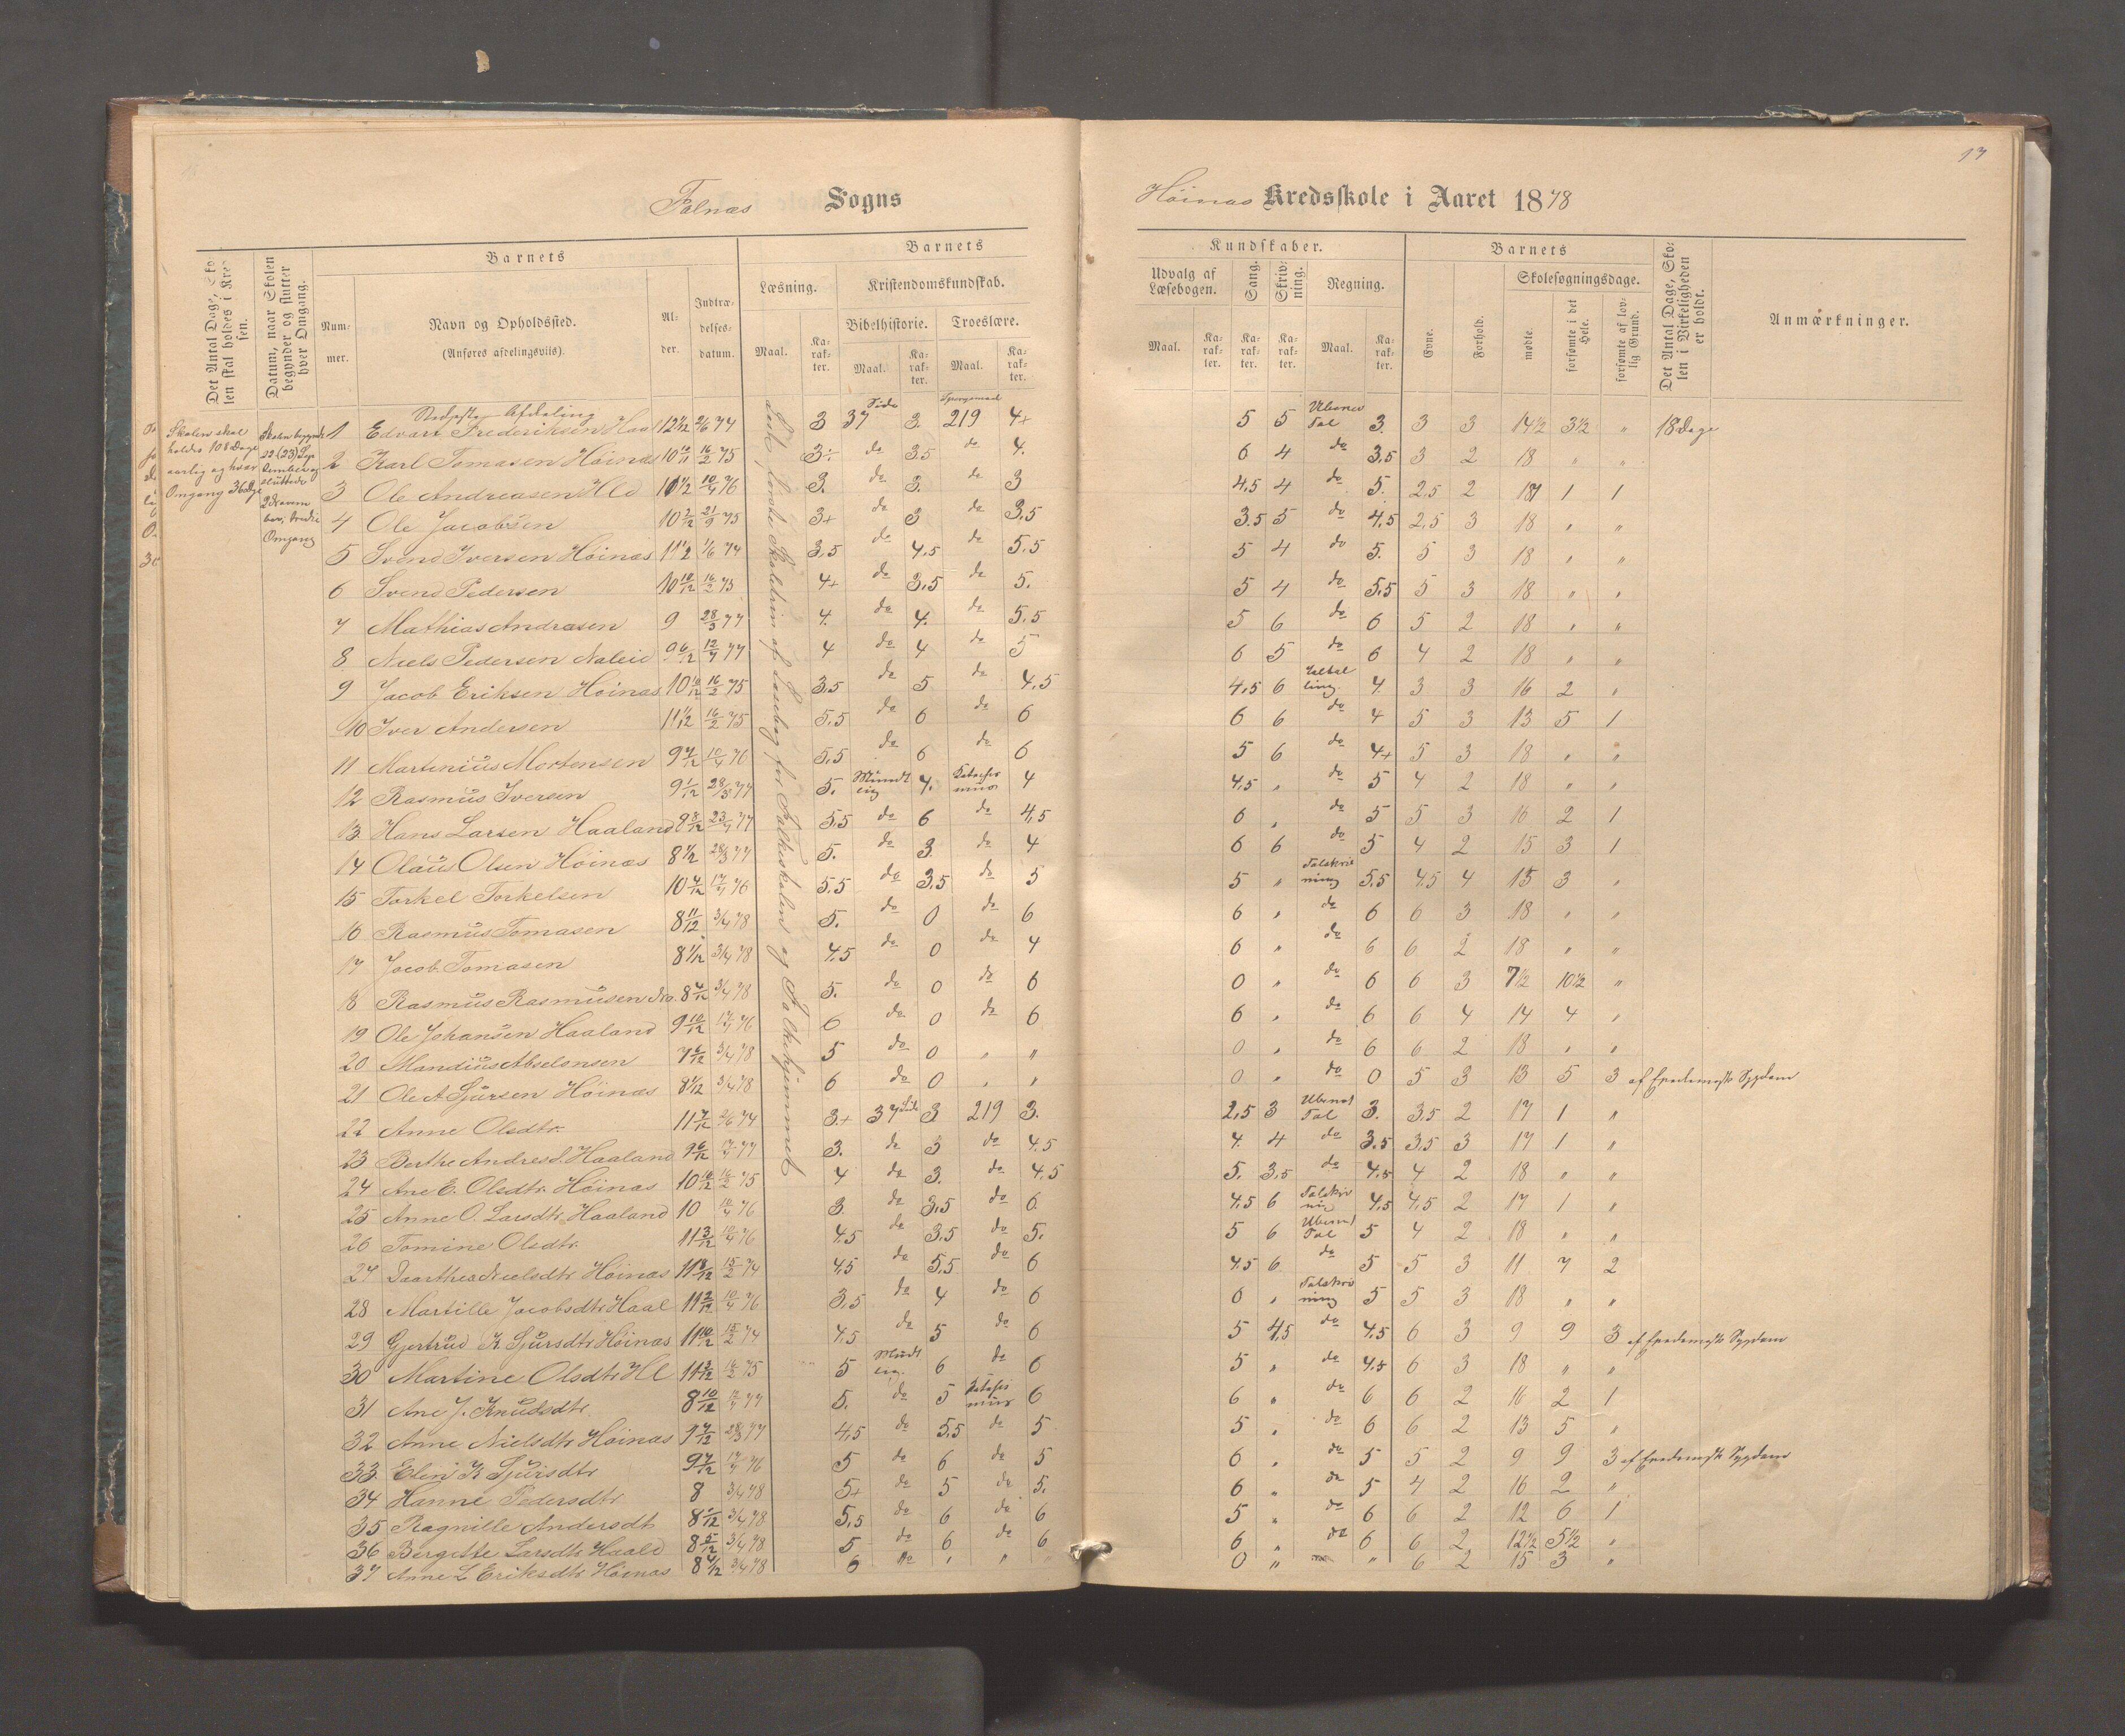 17
Falnæs Sogns
Høinæs Kredsskole i Aaret 1878
Det Antal Dage, Skolen skal holdes i Kredsen.
Datum, naar Skolen begynder og slutter hver Omgang.
Barnets
Nummer.
Navn og Opholdssted.
(Anføres afdelingsviis).
Alder.
Indtrædelsesdatum.
Barnets
Læsning.
Maal.
Karakter.
Kristendomskundskab.
Bibelhistorie.
Maal.
Karakter.
Troeslære.
Maal.
Karakter.
Kundskaber.
Udvalg af Læsebogen.
Maal.
Karakter.
Sang.
Karakter.
Skrivning.
Karakter.
Regning.
Maal.
Karakter.
Barnets
Evne.
Forhold.
Skolesøgningsdage.
mødte.
forsømte i det Hele.
forsømte af lovlig Grund.
Det Antal Dage, Skolen i Virkeligheden er holdt.
Anmærkninger.
Skolen skal
holdes 108 Dage
aarlig og hver
Omgang 36 Dge
Skolen begyndte
22 (23) Sep
tember og
sluttede
2 Novem
ber, tredie
Omgang
Nederste Afdeling
1 Edvart Frederiksen Haal 12 1/12 2/6 74 3 37 Side 3 219 4+ 5 5 Ubenev Tal 3. 3 3 14½ 3½ " 18 Dage
2 Karl Tomasen Høinæs 10 10/11 16/2 75 3÷ do 3.5 do 4. 6 4 do 3,5 3 2 18 " "
3 Ole Andreasen Hld 10 1/2 10/4 76 3. do 3. do 3 4,5 4 do 5. 2,5 2 17 1 1
4 Ole Jacobsen 10 2/12 21/9 75 3+ do 3 do 3,5 3.5 5 do 4,5 2,5 3 18 " "
5 Svend Iversen Høinæs 11 1/2 1/6 74 3,5 do 4,5 do 5.5 5 4 do 5. 5 3 18 " "
6 Svend Pedersen 10 10/12 16/2 75 4+ do 3,5 do 5. 5 4 do 5,5 5 3 18 " "
7 Mathias Andrasen 9 28/3 77 4. do 4. do 5,5 5 6 do 6 5 2 18 " "
8 Niels Pedersen Naleid 9 6/12 12/4 77 4 do 4 do 5 6 5 do 6 4 2 18 " "
9 Jacob Eriksen Høinæs 10 10/12 16/2 75 3,5 do 5 do 4,5 4,5 6 4. 3 3 16 2 "
10 Iver Andersen 11 1/12 16/2 75 5,5 do 6 do 6 6 6 do 4 5 3 13 5 1
11 Martinius Mortensen 9 7/12 10/4 76 5,5 do 6 do 6 5 6 do 4+ 5 3 18 " "
12 Rasmus Iversen 9 1/12 28/3 77 5. Mundtlig 4. Katechismus 4 4,5 " do 5 4 2 18 " "
13 Hans Larsen Haaland 9 8/12 23/4 77 5.5 do 6 do 4,5 6 " do 5 5 3 16 2 1
14 Olaus Olsen Høinæs 8 1/2 28/3 77 5. do 3. do 4 6 6 do 5 4 2 15 3 1
15 Torkel Torkelsen 10 4/12 17/4 76 5.5 do 3,5 do 5 5 " Talskrivning 5,5 4.5 4 15 3 "
16 Rasmus Tomasen 8 11/12 3/4 78 5. do 0 do 6 6 " do 6 6 3 18 " "
17 Jacob Tomasen 8 1/12 3/4 78 4.5 do 0 do 4 6 " do 6 6 2 18 " "
18 Rasmus Rasmusen 8 4/12 3/4 78 5. do 0 do 6 0 " do 6 6 3 7½ 10½ "
19 Ole Johansen Haaland 9 10/12 17/4 76 6 do 0 do 6 6 " do 6 6 4 14 4 "
20 Mandius Abselonsen 7 6/12 3/4 78 5 do 0 " " 0 " do 6 6 2 18 " "
21 Ole A Sjursen Høinæs 8 1/12 3/4 78 6 do 0 " " 0 " do 0 5 3 13 5 3 af Epedemisk Sygdom
22 Anne Olsdtr. 11 7/12 2/6 74 3+ 37 Side 3 219 3. 2,5 3 Ubenet Tal 3. 3.5 2 17 1 "
23 Berthe Andresd. Haaland 9 6/12 17/4 77 3. do 3 do 4.5 4. 4 do 3.5 3,5 3 17 1 "
24 Ane E. Olsdtr. Høinæs 10 10/12 16/2 75 4 do 3. do 4.5 5. 3,5 do 4,5 4 2 18 " "
25 Anne O. Larsdtr Haaland 10 10/4 76 3. do 3,5 do 6. 4,5 6 Talskrivnig 4,5 4,5 2 17 1 "
26 Tomine Olsdtr. 11 3/12 10/4 76 4.5 do 3.5 do 5. 5 6 Ubenet Tal 5 4 2 18 " "
27 Daarthea Nielsdtr Høinæs 11 8/12 15/2 74 4,5 do 5,5 do 6 4.5 6 do 5 5 3 11 7 2
28 Martille Jacobsdtr Haal 11 2/12 10/4 76 3,5 do 4 do 6 6 " Talskrivning 5 5 3 18 " "
29 Gjertrud K Sjursdtr Høinæs 11 10/12 15/2 74 4.5 do 5 do 6 5 4,5 do 4,5 6 3 9 9 3 af Epedemisk Sygdom
30 Martine Olsdtr Hl 11 2/12 16/2 75 5 Mundtlig 6 do 6 5 " do 4.5 6 3 18 " "
31 Ane J. Knudsdtr. 8 10/12 12/4 77 5. do 5 Katechismus 6 6 " do 6 6 2 16 2 1
32 Anne Nielsdtr Høinæs 9 7/12 28/3 77 4,5 do 5.5 do 5 5 " do 6 6 2 13 5 "
33 Elin K Sjursdtr 9 7/12 17/4 76 5 do 6 do 5 6 " do 5 5 2 9 9 3 af Epedemisk Sygdom
34 Hanne Pedersdtr 8 3/4 78 5+ do 5 do 5. 6 " do 5 4 2 16 2 "
35 Ragnille Andersdtr 8 1/12 3/4 78 5,5 do 6 do 6 5 " do 6 6 2 12 6 1
36 Bergette Larsdtr Haald 8 5/12 3/4 78 5 do 6 do 6 6 " do 6 6 2 12½ 5½ "
37 Anne L Eriksdtr Høinæs 8 4/12 3/4 78 6 do " " 0 " " 6 2 15 3 "
af Læsebog for Folkeskolen og Folkehjemmet